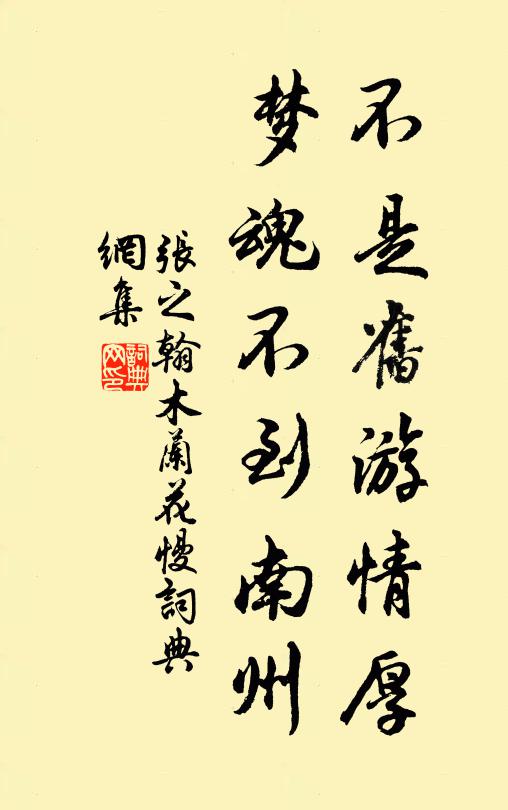 不是舊游情厚
梦魂不到南州
張之翰木蘭花慢詞典
網集
詞典
网印